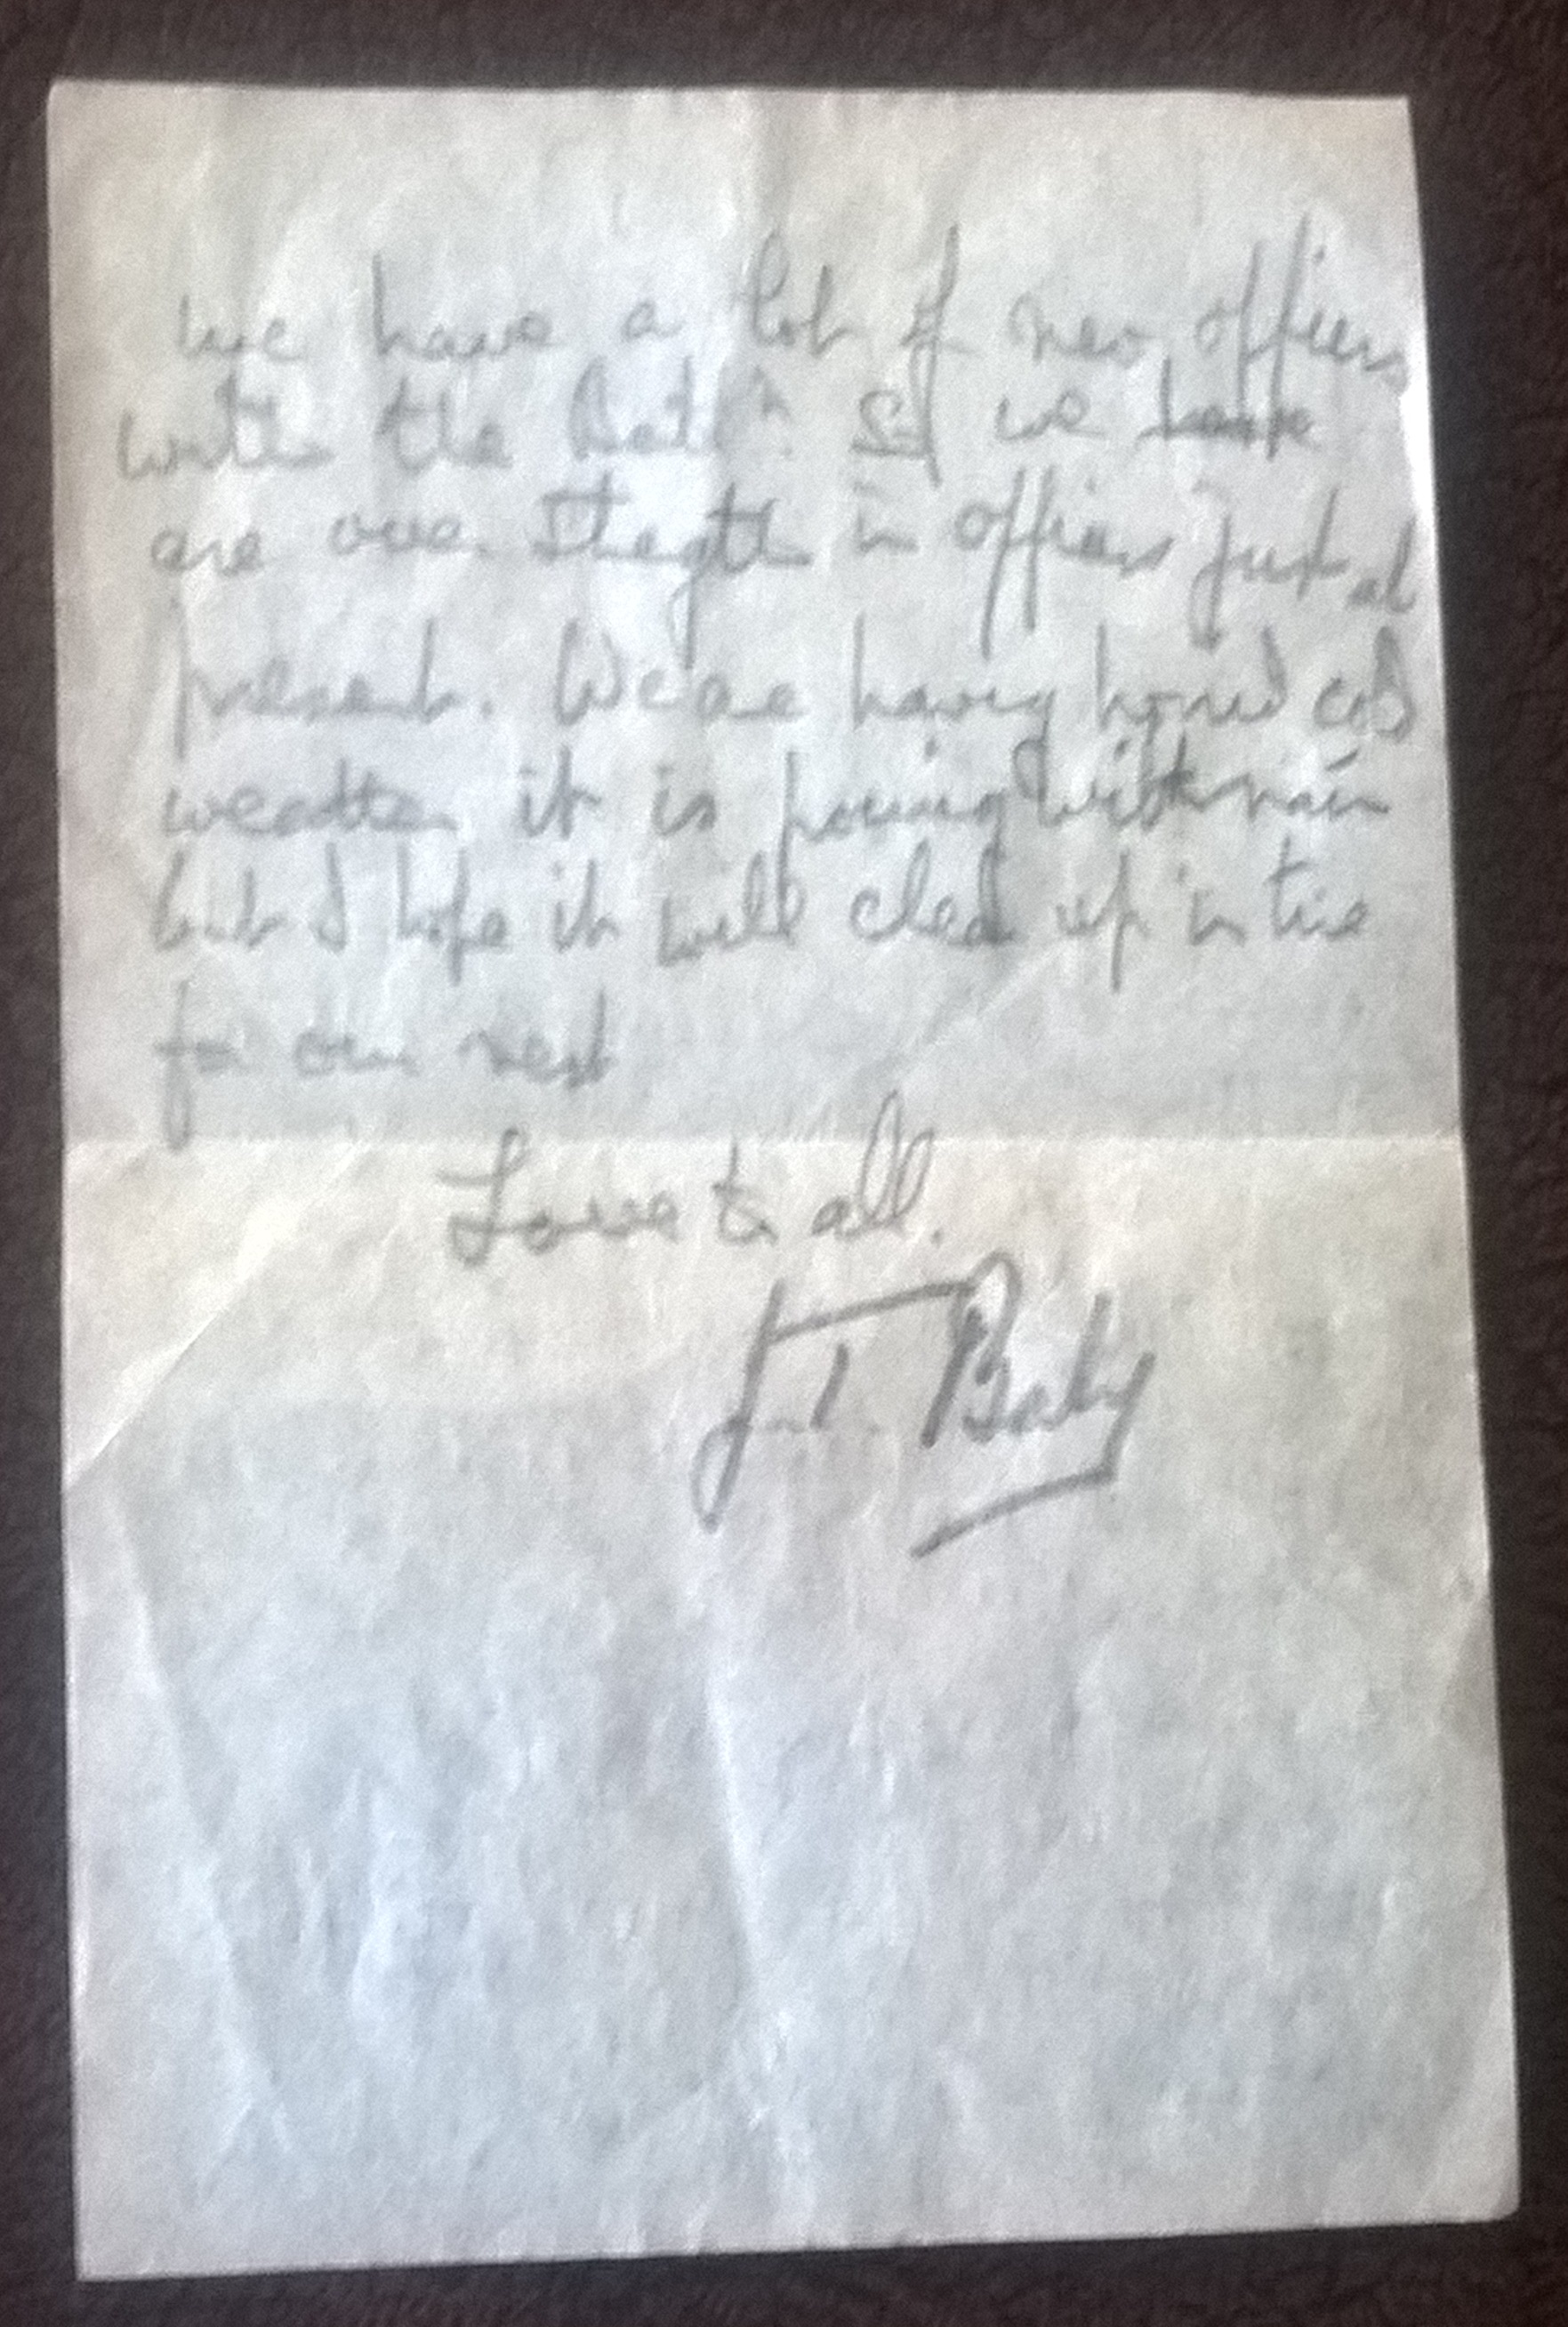 We have a lot of new officers
with the Batt<sup>n</sup>. So we have
are over strength in officers just at
present. We are having horrid cold
weather it is pouring with rain
but I hope it will clear up in time
for our rest
Love to all.
J.T. Baty